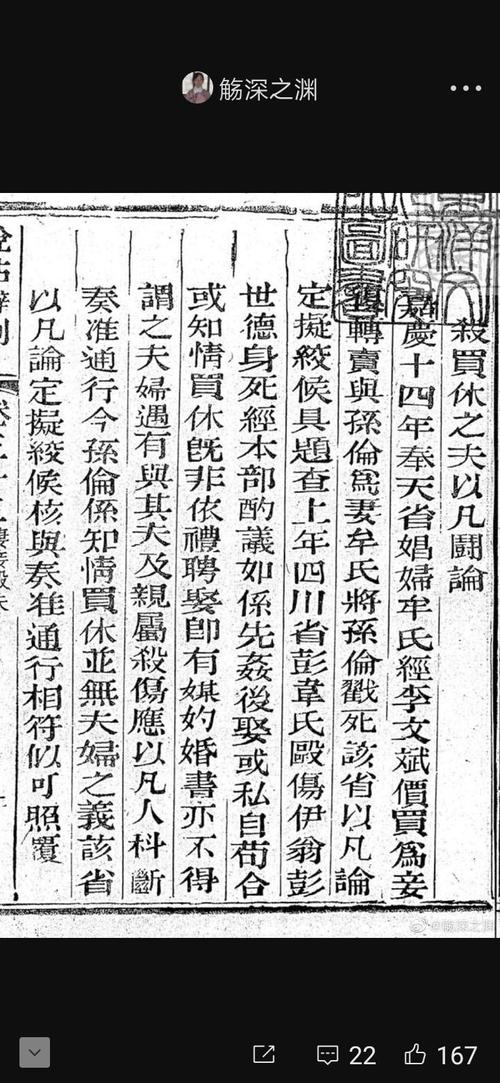 觞深之渊
殺買休之夫以凡鬭論
嘉慶十四年奉天省娼婦牟氏經李文斌價買爲妾
復轉賣與孫倫爲妻牟氏將孫倫戳死該省以凡論
定擬絞候具題查上年四川省彭韋氏毆傷伊翁彭
世德身死經本部酌議如係先姦後娶或私自苟合
或知情買休旣非依禮聘娶卽有媒妁婚書亦不得
謂之夫婦遇有與其夫及親屬殺傷應以凡人科斷
奏准通行今孫倫係知情買休並無夫婦之義該省
以凡論定擬絞候核與奏准通行相符似可照覆
@觞深之渊
22
167